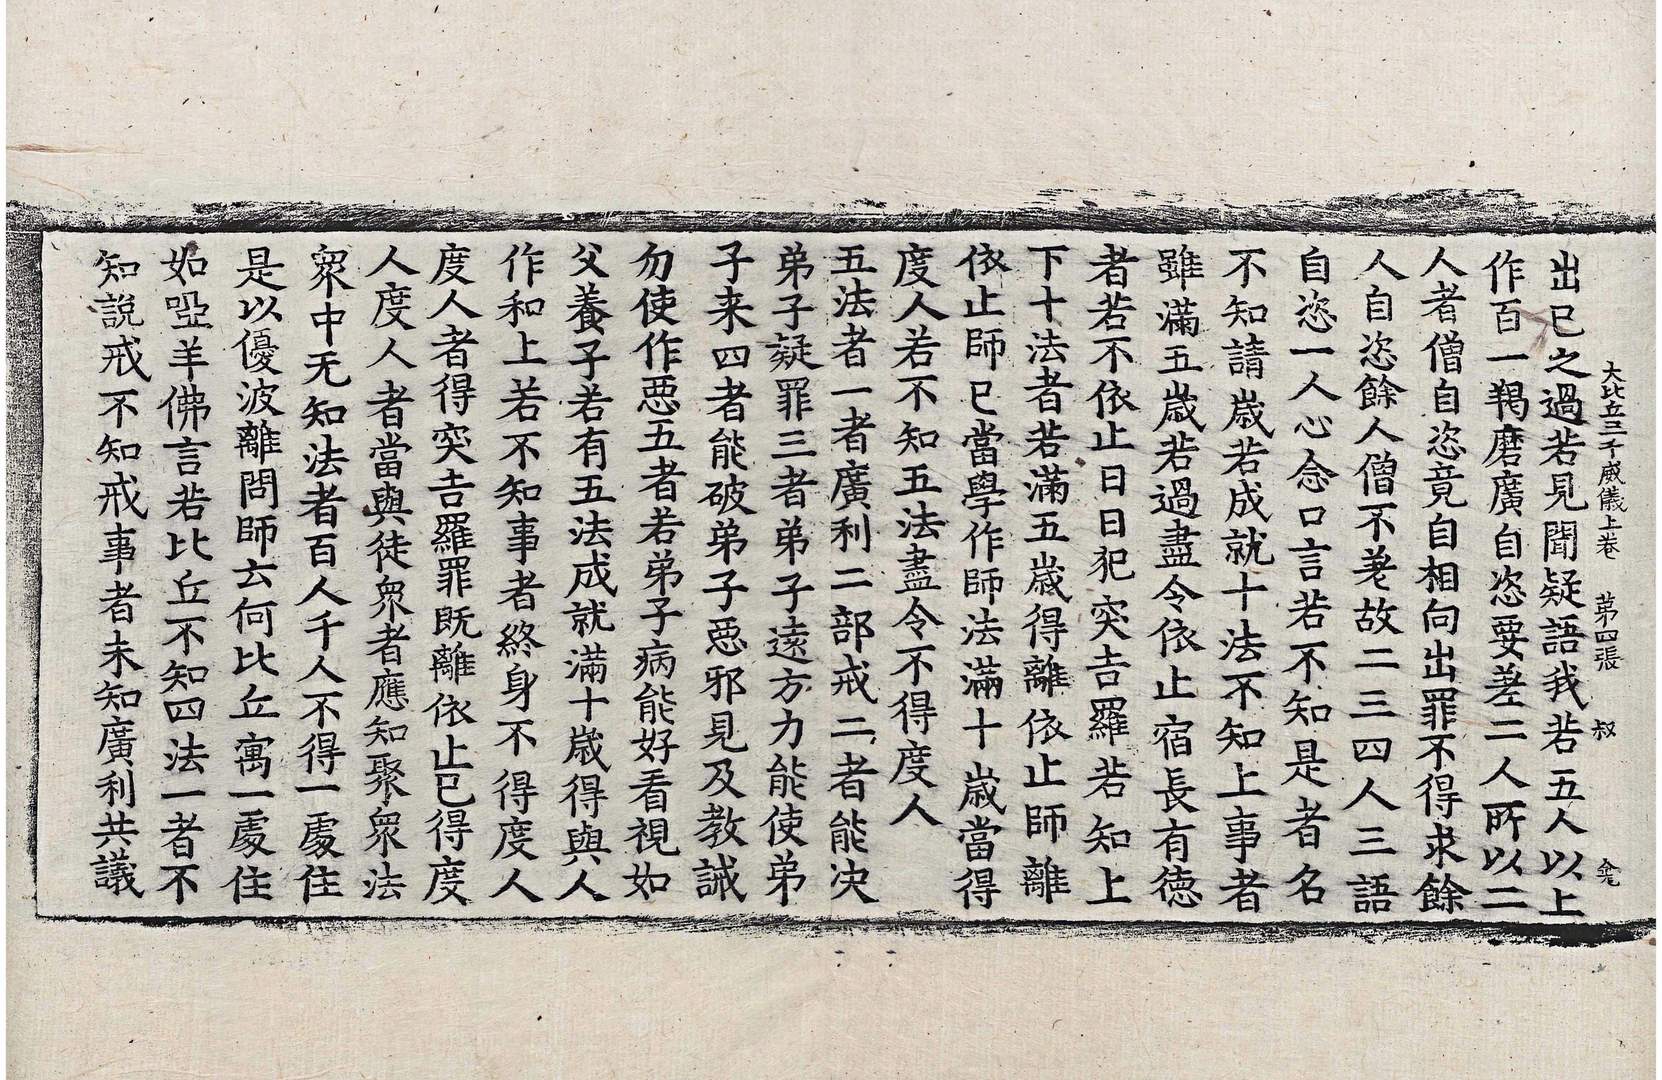 大比丘三千威儀上卷 第四張 叔
出已之過若見聞疑語我若五人以上
作百一羯磨廣自恣要差二人所以二
人者僧自恣竟自相向出罪不得求餘
人自恣餘人僧不差故二三四人三語
自恣一人心念口言若不知是者名
不知請歲若成就十法不知上事者
雖滿五歲若過盡令依止宿長有德
者若不依止日日犯突吉羅若知上
下十法者若滿五歲得離依止師離
依止師已當學作師法滿十歲當得
度人若不知五法盡令不得度人
五法者一者廣利二部戒二者能决
弟子疑罪三者弟子遠方力能使弟
子来四者能破弟子惡邪見及教誡
勿使作惡五者若弟子病能好看視如
父養子若有五法成就滿十歲得與人
作和上若不知事者終身不得度人
度人者得突吉羅罪既離依止已得度
人度人者當與徒衆者應知聚衆法
衆中无知法者百人千人不得一處住
是以優波離問師云何比丘寓一處住
如啞羊佛言若比丘不知四法一者不
知說戒不知戒事者未知廣利共議